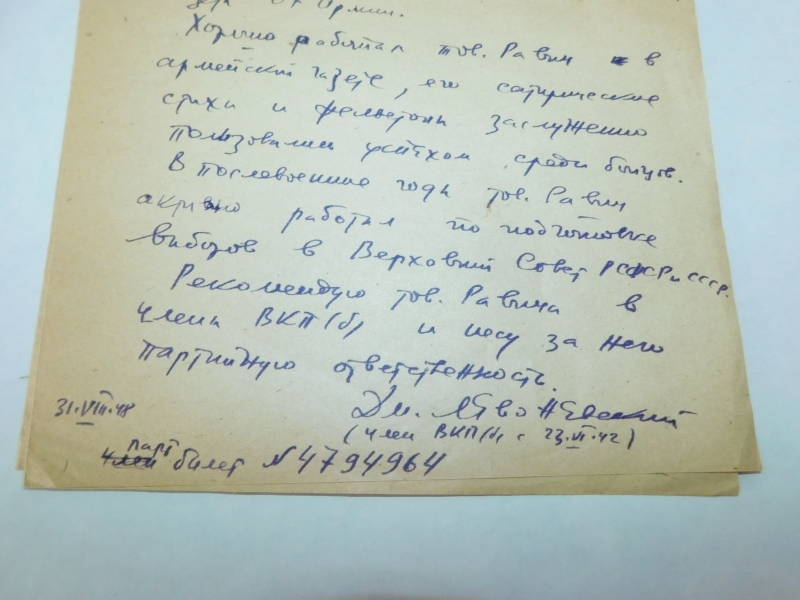 Армии.
Хорошо работал тов. Равич в
армейской газете, его сатирические
стихи и фельетоны заслуженно
пользовались успехом среди бойцов.
В послевоенные годы тов. Равич
активно работал по подготовке
выборов в Верховный Совет РСФСР и СССР.
Рекомендую тов. Равича в
члены ВКП(б) и несу за него
партийную ответственность.
31.VIII.48
Дм.
(член ВКП(б) с 23.VI.42)
парт
билет N 4794964